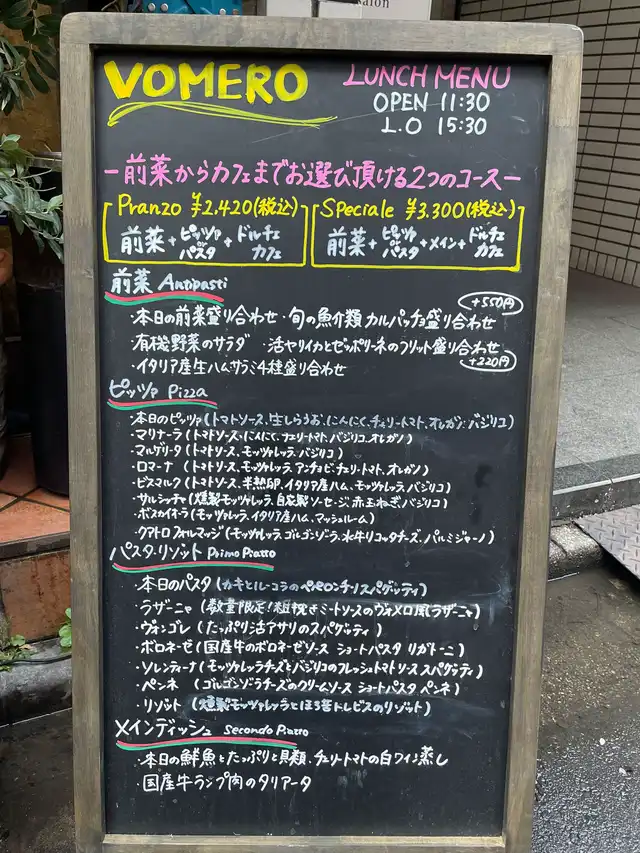 alon
VOMERO
LUNCH MENU
OPEN 11:30
L.O 15:30
ー前菜からカフェまでお選び頂ける2つのコースー
Pranzo ¥2,420(税込)
前菜+ピッツァ or パスタ+ドルチェ カフェ
Speciale ¥3,300(税込)
前菜+ピッツァ or パスタ+メイン+ドルチェ カフェ
前菜 Antipasti
+550円
・本日の前菜盛り合わせ ・旬の魚介類カルパッチョ盛り合わせ
・有機野菜のサラダ ・活ヤリイカとゼッポリーネのフリット盛り合わせ
+220円
・イタリア産生ハムサラミ4種盛り合わせ
ピッツァ Pizza
・本日のピッツァ(トマトソース、生しらうお、にんにく、チェリートマト、オレガノ、バジリコ)
・マリナーラ(トマトソース、にんにく、チェリートマト、バジリコ、オレガノ)
・マルゲリータ(トマトソース、モッツァレッラ、バジリコ)
・ロマーナ(トマトソース、モッツァレッラ、アンチョビ、チェリートマト、オレガノ)
・ビスマルク(トマトソース、半熟卵、イタリア産ハム、モッツァレッラ、バジリコ)
・サルシッチャ(燻製モッツァレッラ、自家製ソーセージ、赤玉ねぎ、バジリコ)
・ボスカイオーラ(モッツァレッラ、イタリア産ハム、マッシュルーム)
・クアトロフォルマッジ(モッツァレッラ、ゴルゴンゾーラ、水牛リコッタチーズ、パルミジャーノ)
パスタ・リゾット Primo Piatto
・本日のパスタ(カキとルーコラのペペロンチーノスパゲッティ)
・ラザーニャ(数量限定!粗挽きミートソースのヴォメロ風ラザーニャ)
・ヴォンゴレ(たっぷり活アサリのスパゲッティ)
・ボロネーゼ(国産牛のボロネーゼソース ショートパスタ リガトーニ)
・ソレンティーナ(モッツァレッラチーズとバジリコのフレッシュトマトソース スパゲッティ)
・ペンネ(ゴルゴンゾーラチーズのクリームソース ショートパスタ ペンネ)
・リゾット(燻製モッツァレッラとほろ苦トレビスのリゾット)
メインディッシュ Secondo Piatto
・本日の鮮魚とたっぷりと貝類、チェリートマトの白ワイン蒸し
・国産牛ランプ肉のタリアータ